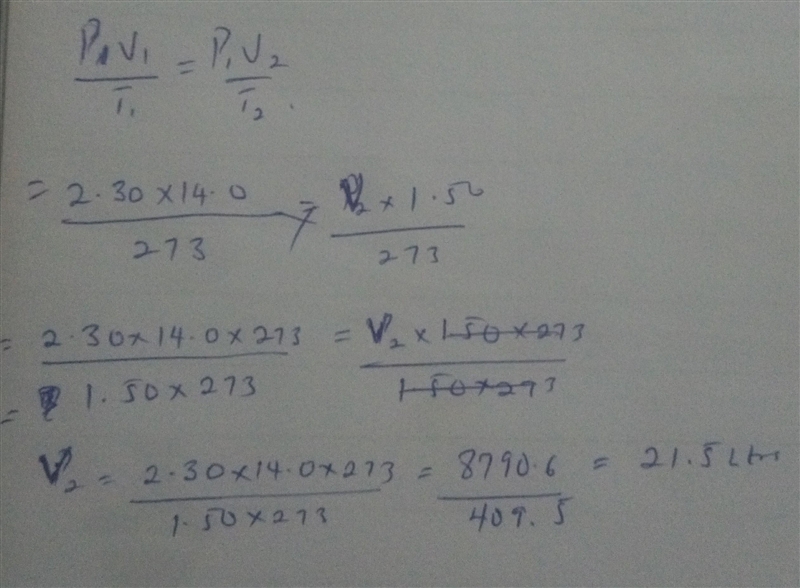 P₁V₁/T₁ = P₁V₂/T₂.
= 2.30 x 14.0 / 273 = V₂ x 1.50 / 273
= 2.30 x 14.0 x 273 / 1.50 x 273 = V₂ x 1.50 x 273 / 1.50 x 273
=
V₂ = 2.30 x 14.0 x 273 / 1.50 x 273 = 8790.6 / 409.5 = 21.5 Ltrs